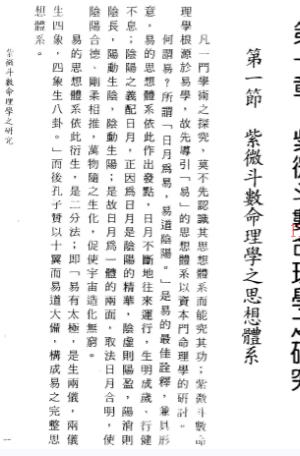 紫微斗數命理學之研究
第一節　紫微斗數命理學之思想體系
凡一門學術之探究，莫不先認識其思想體系而能究其功；紫微斗數命
理學根源於易學，故先導引「易」的思想體系以資本門命理學的研討。
何謂易？所謂「日月爲易，易道陰陽。」是易的最佳詮釋，兼具形
意，易的思想體系依此作出發點，日月不斷地往來運行，生明成歲、行健
不息；陰陽之義配日月，正因爲日月是陰陽的精華，陰虛則陽盈，陽消則
陰長，陽動生陰，陰動生陽；是故日月爲一體的兩面，取法日月合明，使
陰陽合德、剛柔相推，萬物隨之生化，促使宇宙造化無窮。
易的思想體系依此衍生，是二分法；即「易有太極，是生兩儀，兩儀
生四象，四象生八卦。」而後孔子贊以十翼而易道大備，構成易之完整思
想體系。
紫微斗數命理學之研究
一